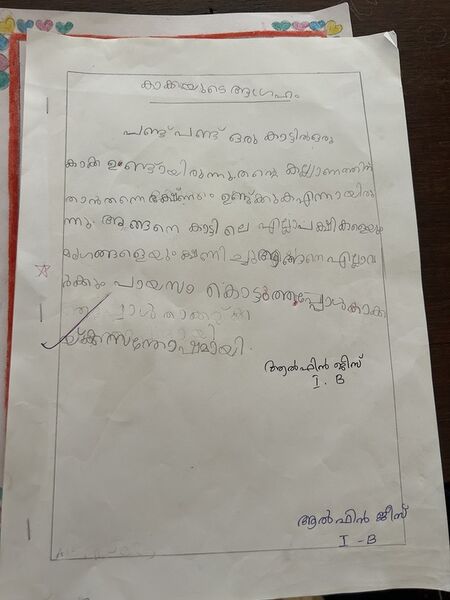 കാക്കയുടെ ആഗ്രഹം
പണ്ട് പണ്ട് ഒരു കാട്ടിൽ ഒരു
കാക്ക ഉണ്ടായിരുന്നു. തന്റെ കല്യാണത്തിന്
താൻ തന്നെ ഭക്ഷണം ഉണ്ടക്കുക എന്നായിരു
ന്നു. അങ്ങനെ കാട്ടി ലെ എല്ലാപക്ഷികളെയും
മൃഗങ്ങളെയും ക്ഷണി ച്ചു അങ്ങനെ എല്ലാവ
ർക്കും പായസം കൊടുത്തപ്പോൾ കാക്ക
യ്ക്ക് സന്തോഷമായി.
ആൽഫിൻ ജീസ്
I. B
ആൽഫിൻ ജീസ്
I - B